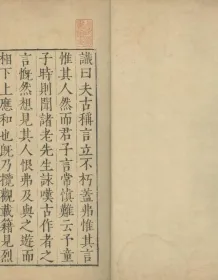 識曰夫古稱言立不朽蓋弗惟其言
惟其人然而君子言常慎難云予童
子時則聞諸老先生詠嘆古作者之
言慨然想見其人恨弗及與之遊而
相下上應和也既乃攬觀載籍見烈